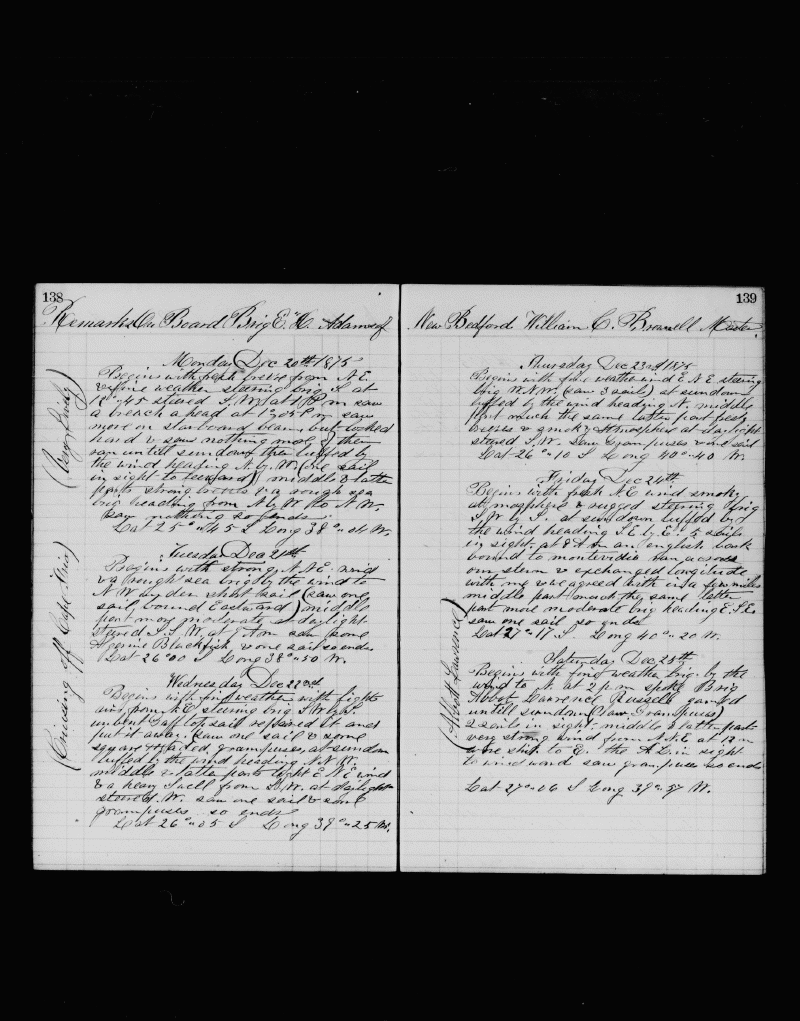 138
Remarks On Board Brig E. H. Adams of
Monday Dec 20th 1875
Begins with fresh breeze from N.E.
& fine weather steering brig S. at
1 P.m saw
a breach ahead at 1 P.m saw
more on starboard beam, but looked
hard & saw nothing more & then
ran untill sundown then luffed by
the wind heading N. by W. (one sail
in sight to leeward) middle & latter
parts strong breeze & a rough sea
brig heading from N by W to N.W.
saw nothing so ends
Lat 25° 45 S Long 38° W.
Tuesday Dec 21st
Begins with strong N.N.E. wind
& a rough sea brig by the wind to
N.W. under short sail (saw one
sail bound Eastward) middle
part more moderate at daylight
steered S.S.W. at A.m saw some
Blackfish & one sail so ends
Lat 26° 00 S Long 38° 50 W.
Wednesday Dec 22nd
Begins with fine weather with light
airs from N.E. steering brig S.W. by S.
unbent Gaff topsail repaired it and
put it away. saw one sail & some
square headed grampuses, at sundown
luffed by the wind heading N.N.W.
middle & latter parts light E.N.E. wind
& a heavy swell from S.W. at daylight
steered W. saw one sail & some
grampuses so ends
Lat 26° 05 S Long 39° 25 W.
(Cruising off Cape Frio)
139
New Bedford William C. Brownell Master
Thursday Dec 23rd 1875
Begins with fine weather wind E.N.E. steering
brig W.N.W. (saw 3 sail) at sundown
luffed by the wind heading N. middle
part much the same latter part fresh
breeze & smoky atmosphere at daylight
steered S.W. saw Grampuses & one sail
Lat 26° 10 S Long 40° 40 W.
Friday Dec 24th
Begins with fresh N.E. wind smoky
atmosphere & rugged steering brig
S.W. by S. at sundown luffed by
the wind heading S.E. by E. 5 sails
in sight. at an english bark
bound to montevideo ran across
our stern & exchanged longitude
with me & we agreed with in a few miles
middle part much the same latter
part more moderate brig heading E.S.E.
saw one sail so ends
Lat 27° 17 S Long 40° 20 W.
Saturday Dec 25th
Begins with fine weather brig by the
wind to N. at 2 p.m spoke Brig
Abbot Lawrence Russell gamed
untill sundown (saw Grampuses)
2 sails in sight middle & latter parts
very strong wind from N.N.E. at 12 m
wore ship to E. the A L in sight
to windward saw grampuses so ends
Lat 27° 06 S Long 39° 57 W.
(Abbott Lawrence)